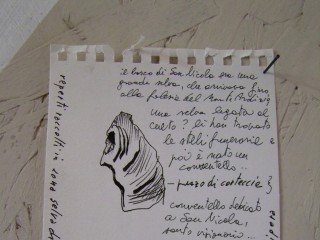 il bosco di San Nicola era una
grande selva, che arrivava fino
alla falesia del
una selva legata al
culto? Lì han trovato
le steli funerarie e
poi è nato un
conventello...
pezzo di corteccia
conventello dedicato
a San Nicola,
santo visionario...
reperti raccolti in una selva di